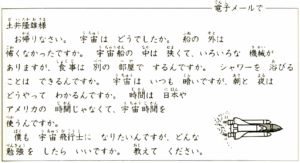 電子メールで
土井隆雄様
お帰りなさい。宇宙は どうでしたか。船の 外は
怖くなかったですか。宇宙船の 中は 狭くて、いろいろな 機械が
ありますが、食事は 別の 部屋で するんですか。シャワーを 浴びる
ことは できるんですか。宇宙は いつも 暗いですが、朝と 夜は
どうやって わかるんですか。時間は 日本や
アメリカの 時間じゃなくて、宇宙時間を
使うんですか。
僕も 宇宙飛行士に なりたいんですが、どんな
勉強を したら いいですか。教えて ください。